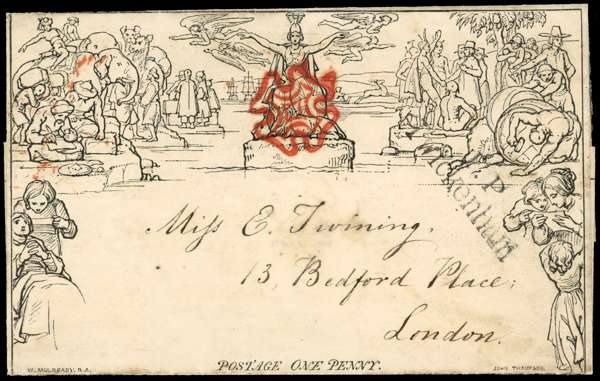 P
Miss E. Twining,
13, Bedford Place;
London.
W. MULREADY, R.A.
POSTAGE ONE PENNY.
JOHN THOMPSON.